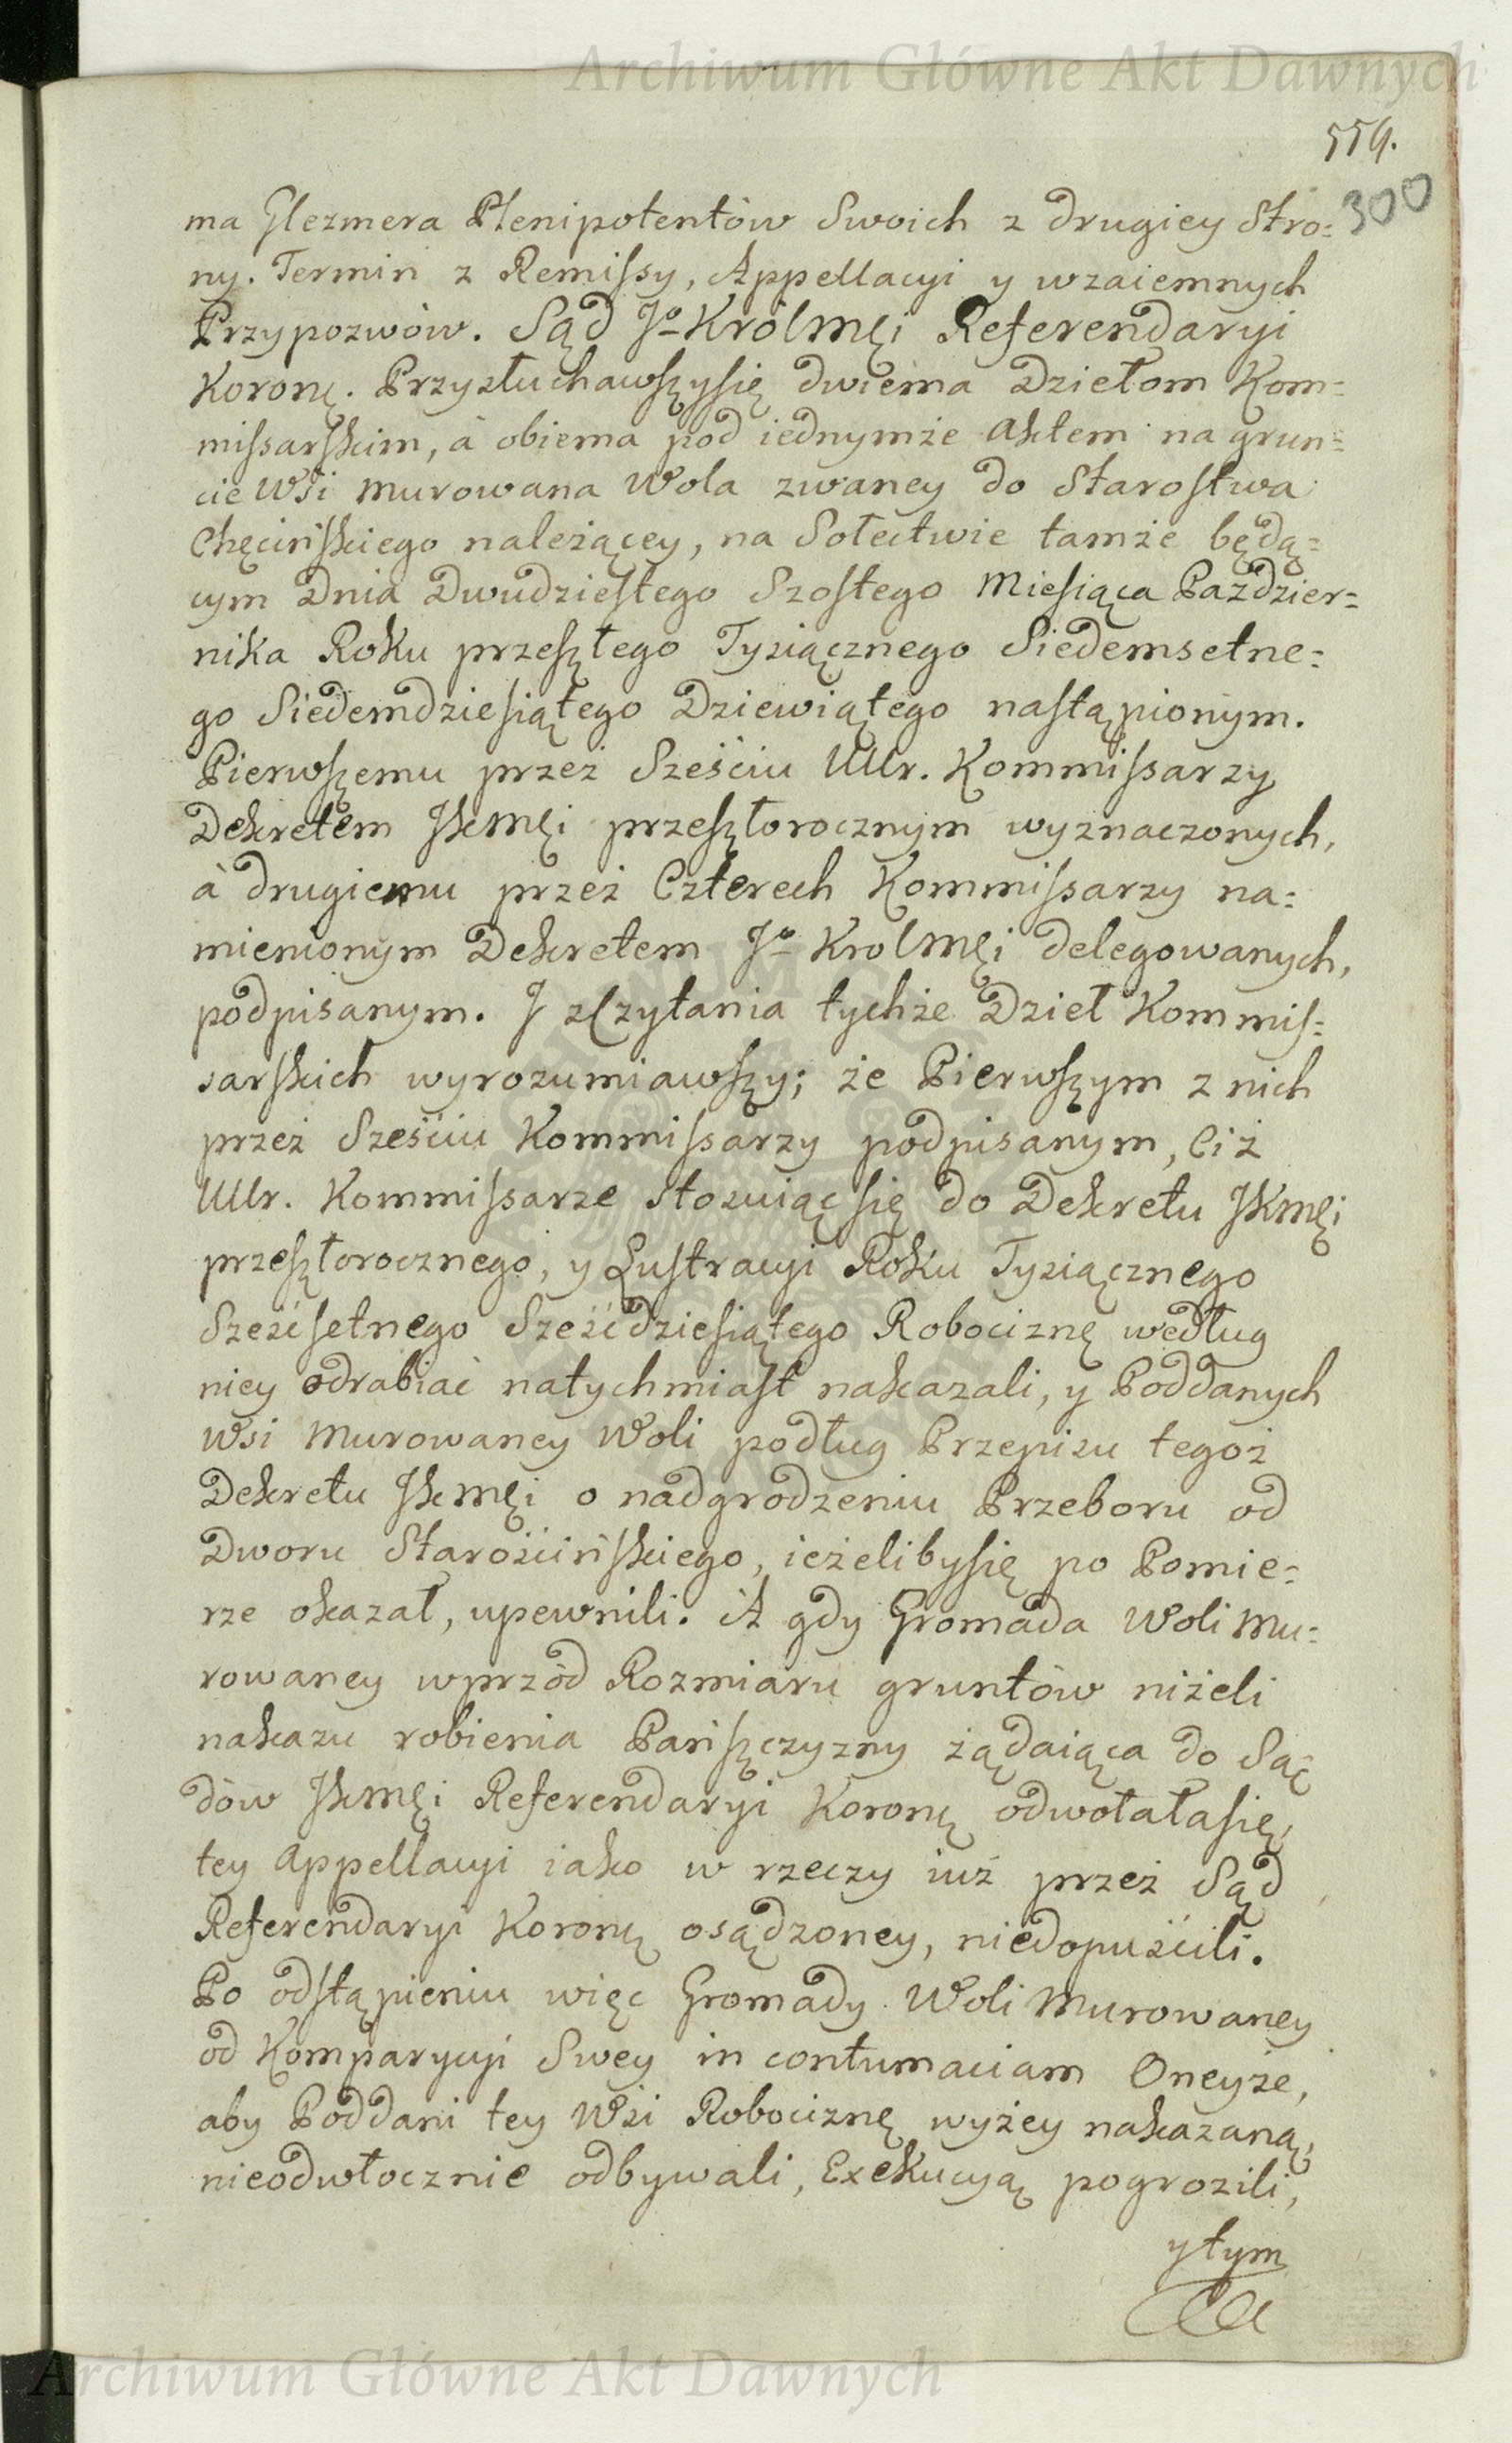 Archiwum Główne Akt Dawnych
559.
300
ma Glezmera Plenipotentów Swoich z drugiey Stro=
ny. Termin z Remissy, Appellacyi y wzaiemnych
Przypozwów. Sąd Jo KrólMci Referendaryi
Koronę. Przysłuchawszysię dwiema Dziełom Kom=
missarskim, à obiema pod iednymże Aktem na grun=
cie Wsi Murowana Wola zwaney do Starostwa
Chęcińskiego należącey, na Sołectwie tamże będą=
cym Dnia Dwudziestego Szostego Miesiąca Pazdzier=
nika Roku przeszłego Tysiącznego Siedemsetne=
go Siedemdziesiątego Dziewiątego nastąpionym.
Pierwszemu przez Sześciu UUr. Kommissarzy
Dekretem JKMci przeszłorocznym wyznaczonych,
à drugiemu przez Czterech Kommissarzy na=
mienionym Dekretem Jo KrolMci delegowanych,
podpisanym. J zCzytania tychże Dzieł Kommis=
sarskich wyrozumiawszy; że Pierwszym z nich
przez Sześciu Kommissarzy podpisanym, Ciż
UUr. Kommissarze stosuiąc się do Dekretu JKMci
przeszłorocznego, y Lustracyi Roku Tysiącznego
Sześćsetnego Sześćdziesiątego Robociznę według
niey odrabiać natychmiast nakazali, y Poddanych
Wsi Murowaney Woli podług Przepisu tegoż
Dekretu JKMci o nadgrodzeniu Przeboru od
Dworu Starościńskiego, ieżelibysię po Pomie=
rze okazał, upewnili. A gdy Gromada Woli Mu=
rowaney wprzód Rozmiaru gruntów niżeli
nakazu robienia Pańszczyzny żądaiąca do Są=
dów JKMci Referendaryi Koronę odwołałasię,
tey Appellacyi iako w rzeczy iuż przez Sąd
Referendaryi Koronę osądzoney, niedopuścili.
Po odstąpieniu więc Gromady Woli Murowaney
od Komparycyi Swey in contumaciam Oneyże,
aby Poddani tey Wsi Robociznę wyżey nakazaną,
nieodwłocznie odbywali, Exekucyą pogrozili,
y tym
Archiwum Główne Akt Dawnych